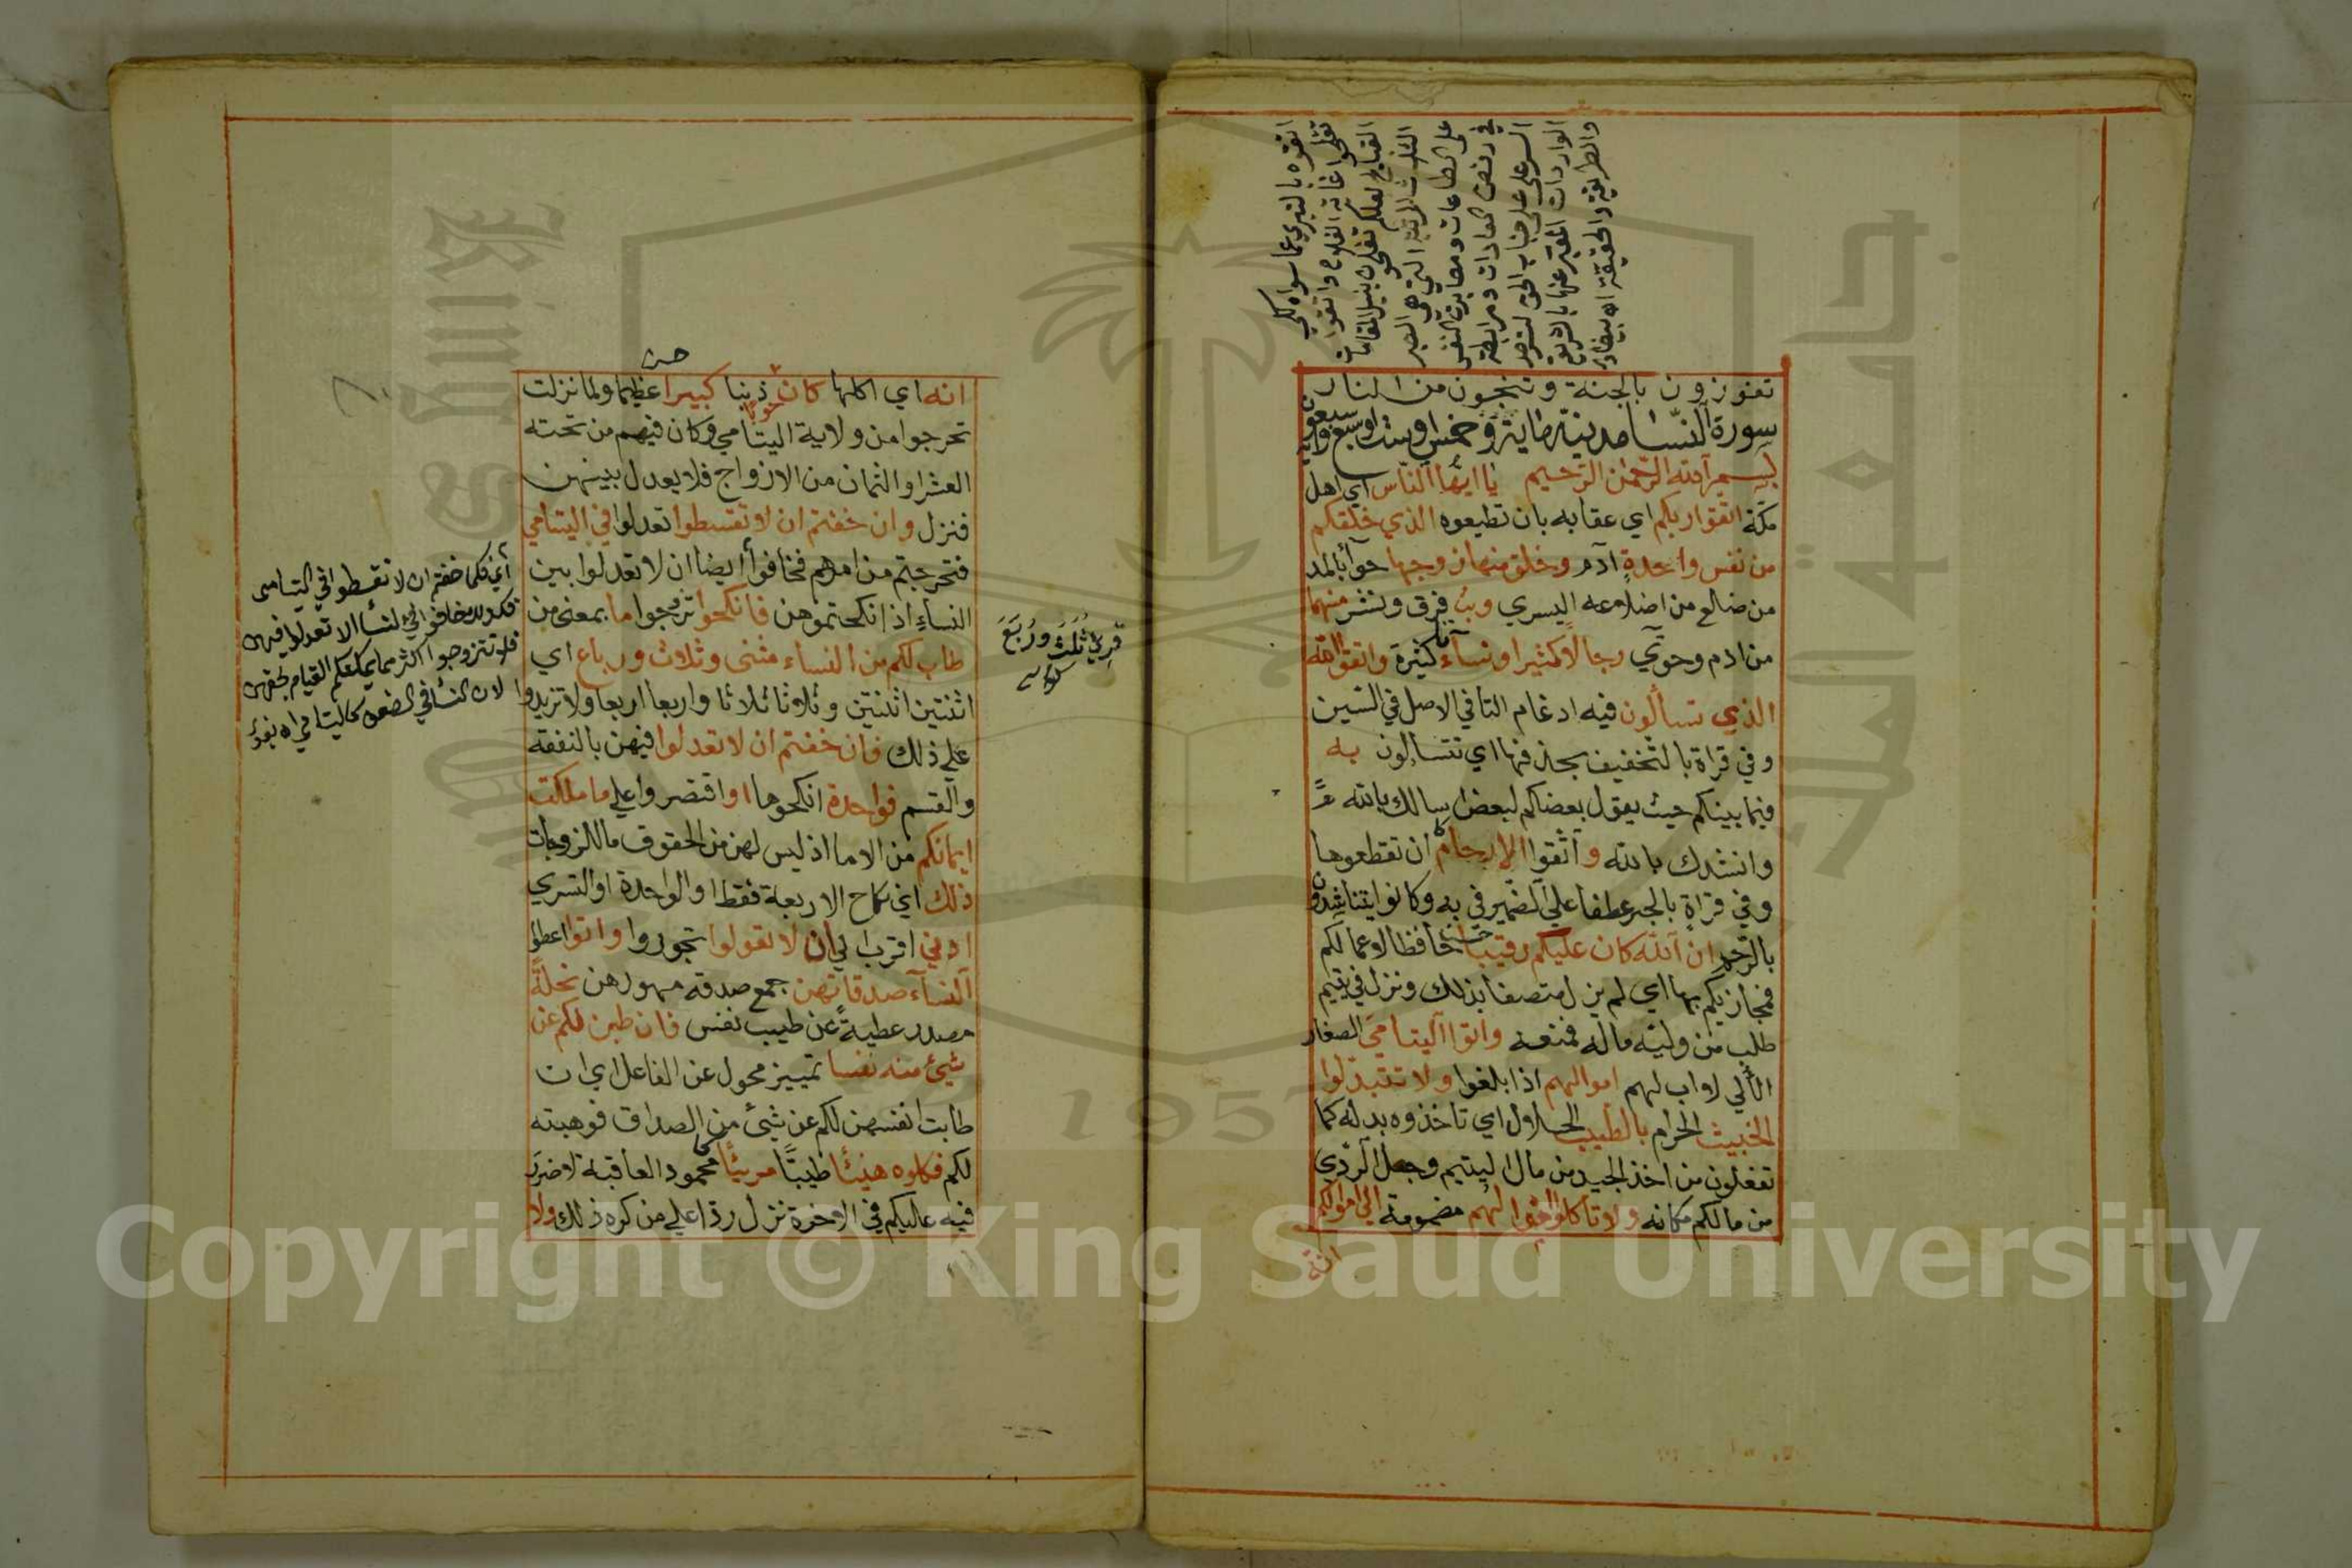 اتقوه بالتبري عما سواه لكي
تفلحوا غاية الفلاح واتقوا
القبايح لعلكم تفلحون بنيل المقامات
الثلث المرتبة التي هي الصبر
على الطاعات ومصابرة النفس
في رفض العادات ومرابطة
السر على جناب الحق لترصد
الواردات المعبر عنها بالشريعة
والطريقة والحقيقة اه بيضاوي
تفوزون بالجنة وتنجون من النار
سورة النسا مدنية ماية وخمس او ست او سبع وسبعون اية
بسم الله الرحمن الرحيم يا ايها الناس اي اهل
مكة اتقوا ربكم اي عقابه بان تطيعوه الذي خلقكم
من نفس واحدة آدم وخلق منها زوجها حوآ بالمد
من ضلع من اضلاعه اليسري وبث فرق ونشر منهما
من ادم وحوي رجالا كثيرا ونسآء كثيرة واتقوا الله
الذي تسألون فيه ادغام التا في الاصل في السين
وفي قراة بالتخفيف بحذفها اي تتسالون به
فيما بينكم حيث يقول بعضكم لبعض اسالك بالله
وانشدك بالله واتقوا الارحام ان تقطعوها
وفي قراة بالجر عطفا علي الضمير في به وكانوا يتناشدون
بالرحم ان الله كان عليكم رقيبا حافظا لاعمالكم
فمجازيكم بها اي لم يزل متصفا بذلك ونزل في يتيم
طلب من وليه ماله فمنعه واتوا اليتامي الصغار
الألي لا اب لهم اموالهم اذا بلغوا ولا تتبدلوا
الخبيث الحرام بالطيب الحلال اي تاخذوه بدله كما
تفعلون من اخذ الجيد من مال اليتيم وجعل الردي
من مالكم مكانه ولا تاكلوا اموالهم مضمومة الي اموالكم
انه
حسن
انه اي اكلها كان حوبا ذنبا كبيرا عظيما ولما نزلت
تحرجوا من ولاية اليتامي وكان فيهم من تحته
العشر او الثمان من الازواج فلا يعدل بينهن
فنزل وان خفتم ان لا تقسطوا تعدلوا في اليتامي
فتحرجتم من امرهم فخافوا ايضا ان لا تعدلوا بين
النساء اذا نكحتموهن فانكحوا تزوجوا ما بمعني من
طاب لكم من النساء مثنى وثلاث ورباع اي
اثنتين اثنتين وثلاثا ثلاثا واربعا اربعا ولا تزيدوا
علي ذلك فان خفتم ان لا تعدلوا فيهن بالنفقة
والقسم فواحدة انكحوها او اقتصروا علي ما ملكت
ايمانكم من الاما اذ ليس لهن من الحقوق ما للزوجات
ذلك اي نكاح الاربعة فقط او الواحدة او التسري
ادني اقرب الي ان لا تعولوا تجوروا واتوا اعطوا
النسآء صدقاتهن جمع صدقة مهورهن نحلة
مصدر عطية عن طيب نفس فان طبن لكم عن
شيء منه نفسا تمييز محول عن الفاعل اي ان
طابت انفسهن لكم عن شيء من الصداق فوهبنه
لكم فكلوه هنيئا طيبا مريئا محمود العاقبة لا ضرر
فيه عليكم في الاخرة نزل ردا علي من كره ذلك ولا
قرئ ثُلَثَ ورُبَعَ
أي فكما خفتم ان لا تقسطوا في اليتامى
فكذلك خافوا في النسأ الا تعدلوا فيهن
فلا تتزوجوا اكثر مما يمكنكم القيام بحقهن
لان النسأ في الضعف كاليتامي اه بغوي
Copyright © King Saud University
جامعة الملك
1957